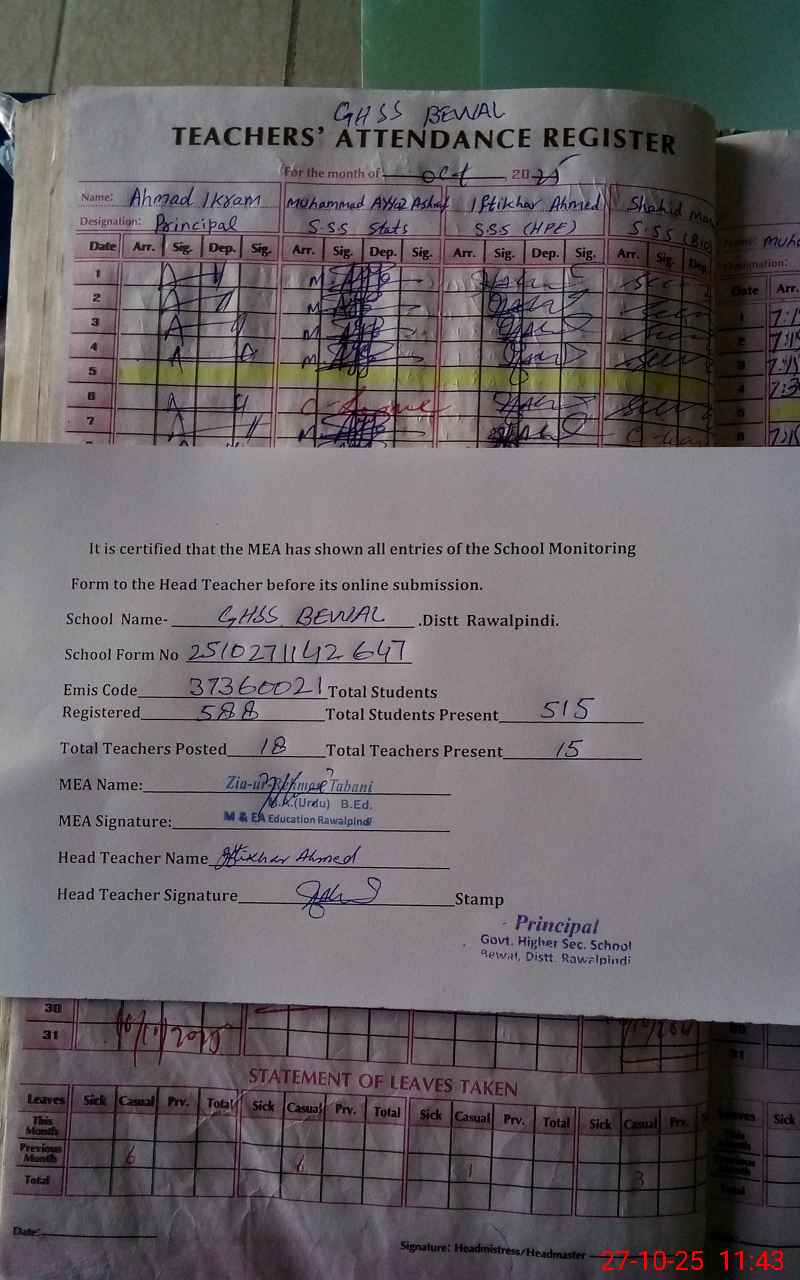 GHSS BEWAL
TEACHERS' ATTENDANCE REGISTER
For the month of Oct, 2025
Name: Ahmad Ikram Muhammad Ashraf Iftikhar Ahmed Shahid
Designation: Principal S.S.S Stats S.S.S (HPE) S.S.S (Bio)
Date Arr. Sig. Dep. Sig. Arr. Sig. Dep. Sig. Arr. Sig. Dep. Sig. Arr. Sig. Dep. Date Arr.
1
2
3
4
5
6
7
It is certified that the MEA has shown all entries of the School Monitoring
Form to the Head Teacher before its online submission.
School Name- GHSS BEWAL .Distt Rawalpindi.
School Form No 2510271142647
Emis Code 37360021 Total Students
Registered 588 Total Students Present 515
Total Teachers Posted 18 Total Teachers Present 15
MEA Name: Zia-ur-Rehman Tabani
M.A.(Urdu) B.Ed.
MEA Signature: M & EA Education Rawalpindi
Head Teacher Name Iftikhar Ahmed
Head Teacher Signature Stamp
Principal
Govt. Higher Sec. School
Bewal, Distt. Rawalpindi
30
31
STATEMENT OF LEAVES TAKEN
Leaves Sick Casual Prv. Total Sick Casual Prv. Total Sick Casual Prv. Total Sick Casual Prv. Leaves Sick
This Month
Previous Month 6 1 1 3
Total
Date:
Signature: Headmistress/Headmaster
27-10-25 11:43